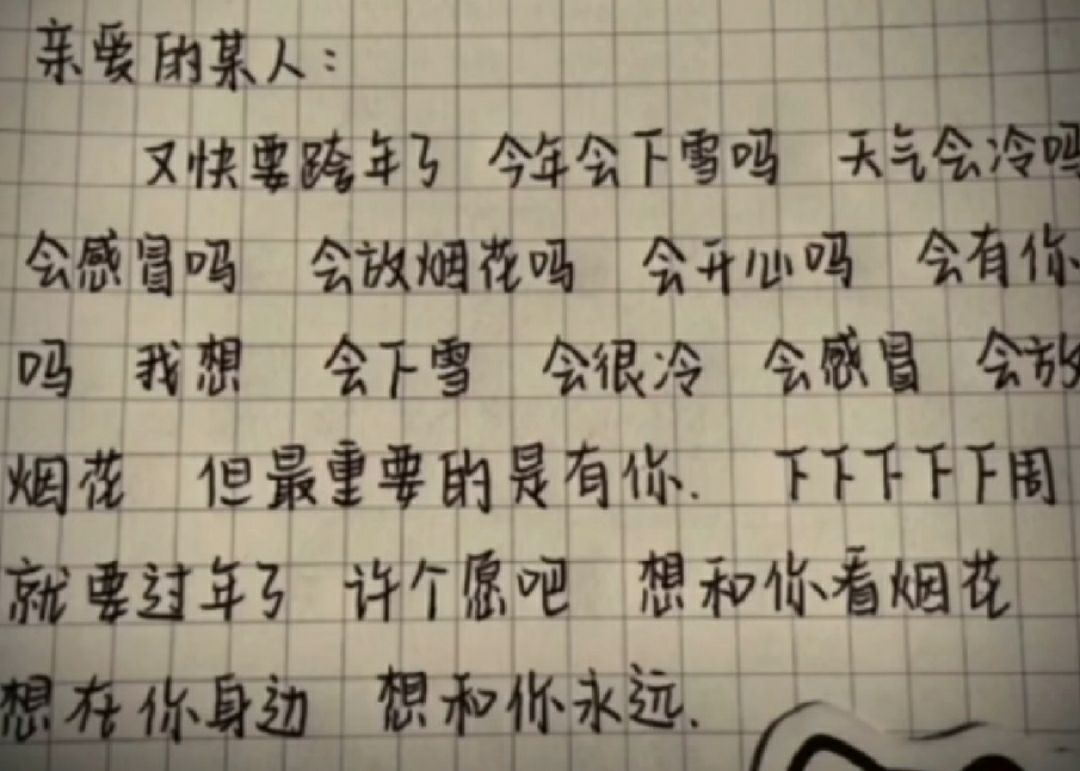 亲爱的某人：
又快要跨年了 今年会下雪吗 天气会冷吗
会感冒吗 会放烟花吗 会开心吗 会有你
吗 我想 会下雪 会很冷 会感冒 会放
烟花 但最重要的是有你. 下下下下下周
就要过年了 许个愿吧 想和你看烟花
想在你身边 想和你永远.